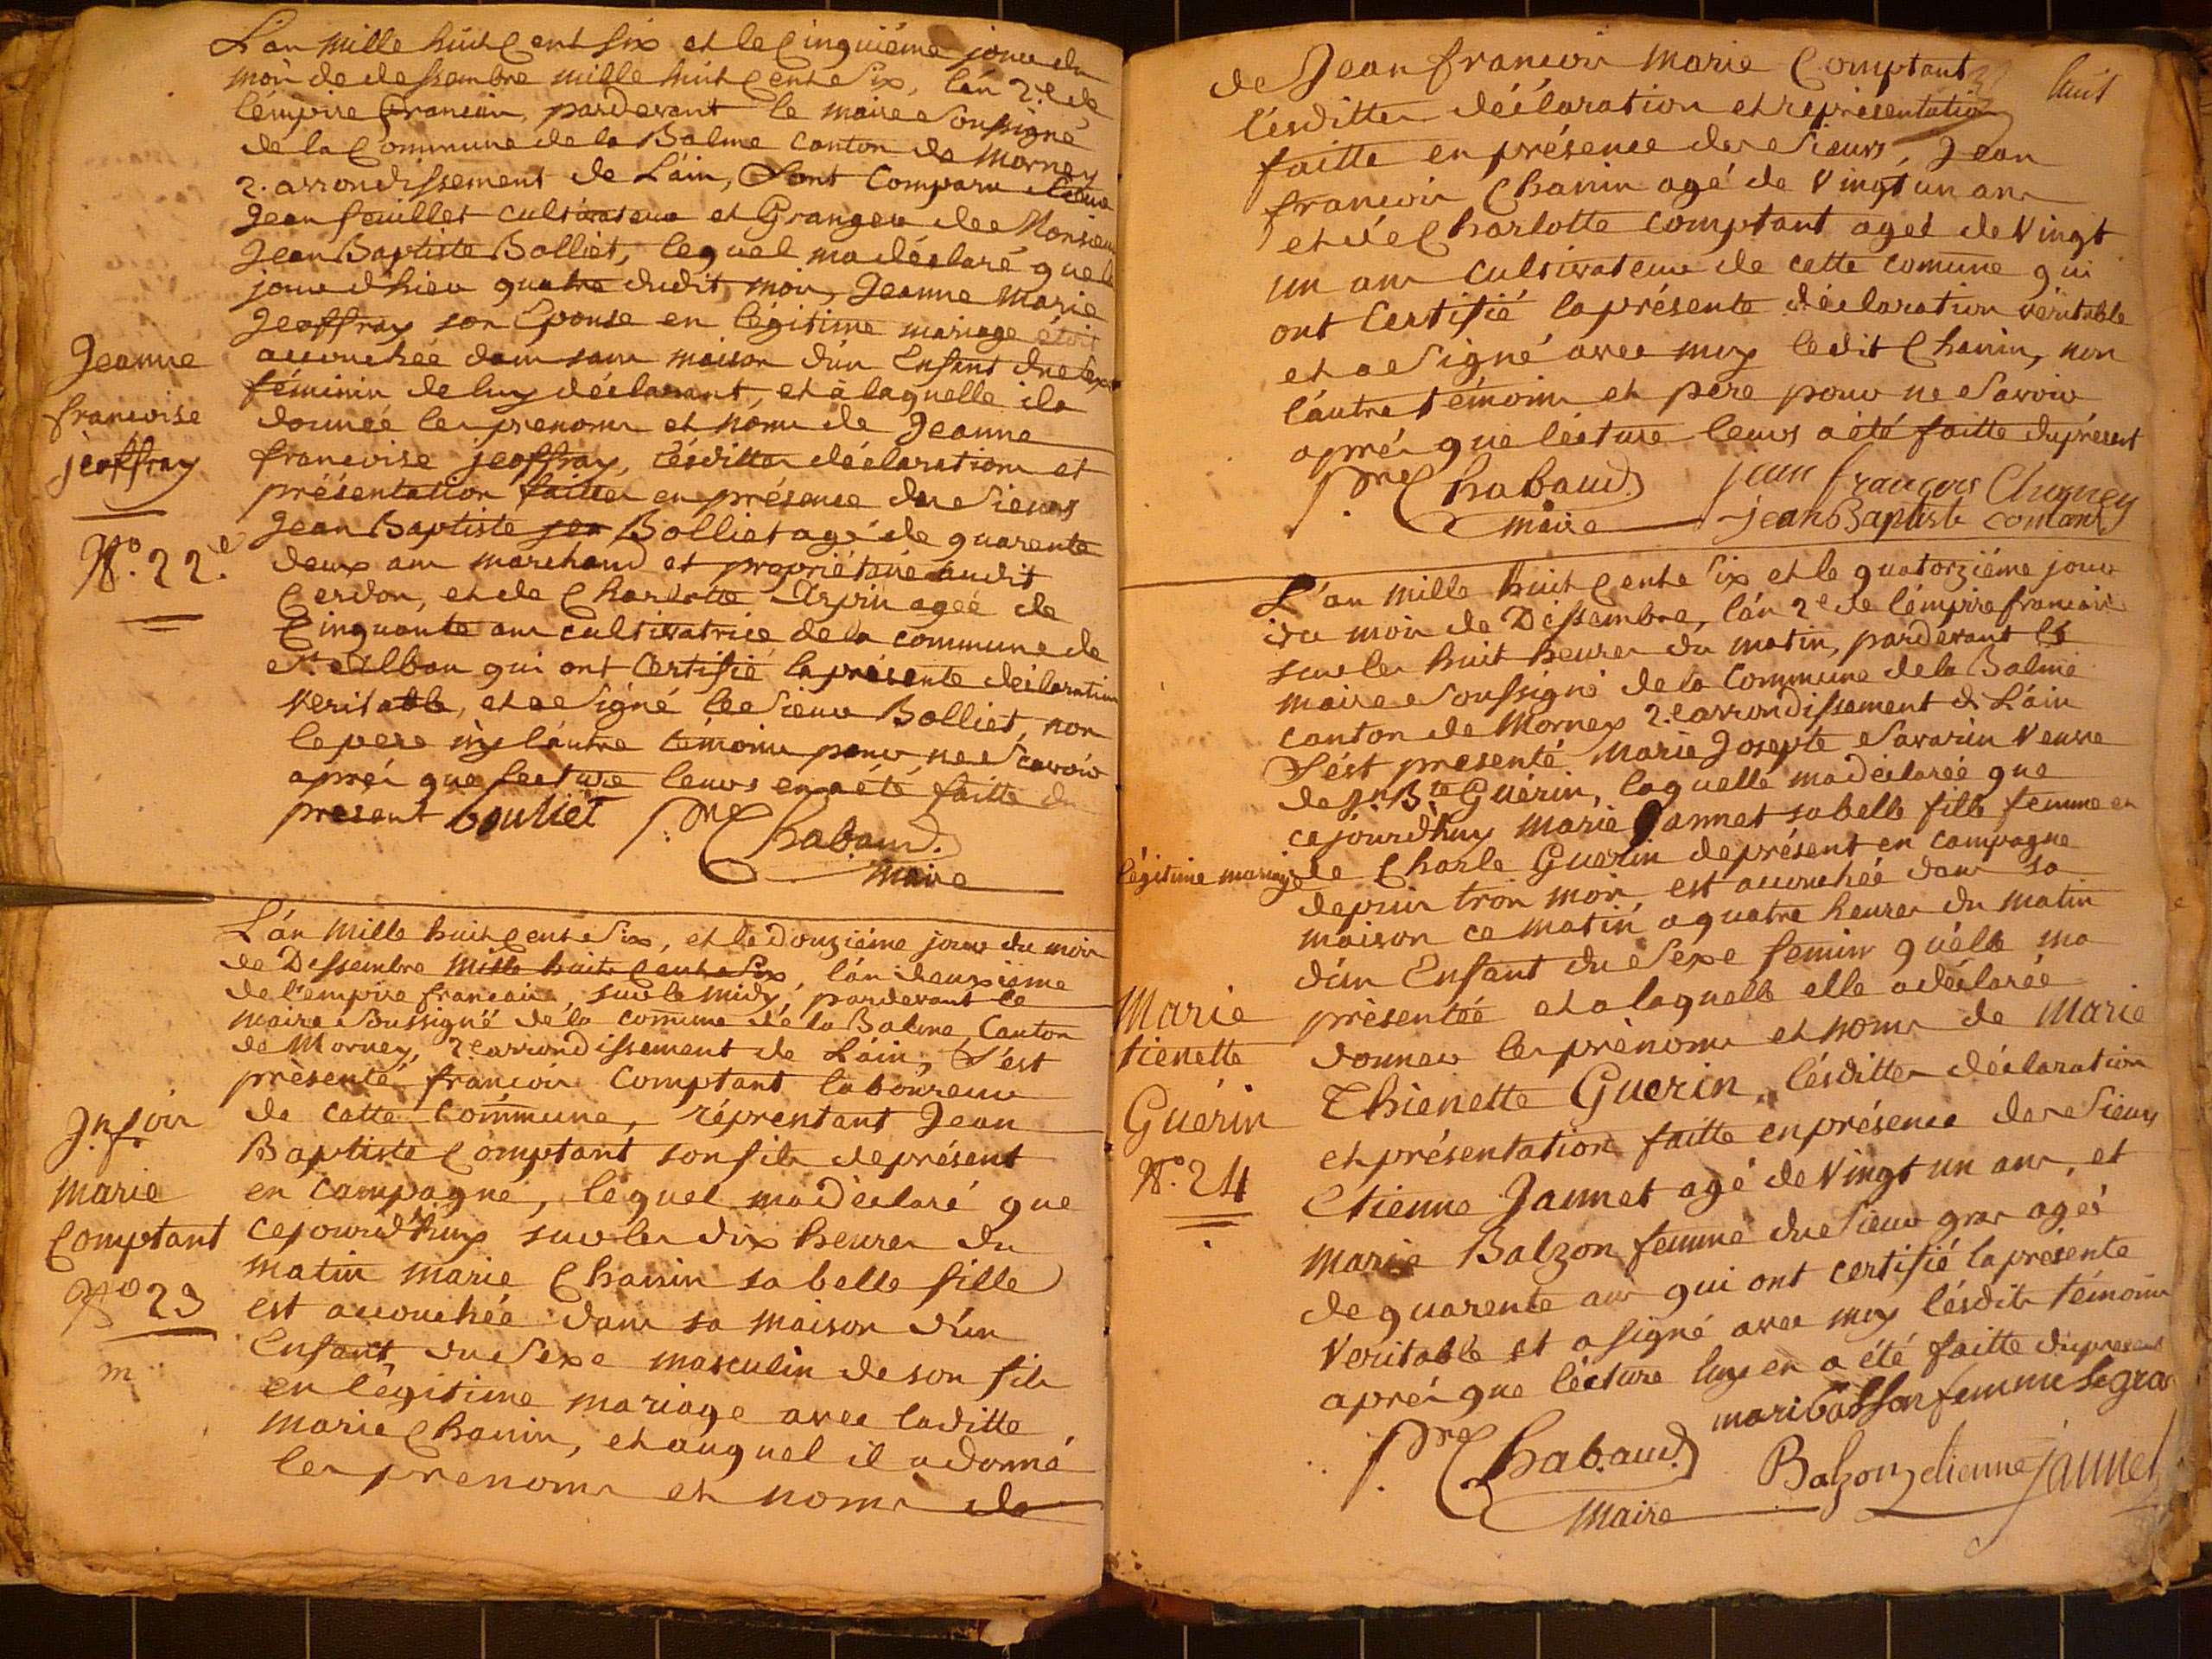 L'an mille huit Cent six et le Cinquiéme jour du
mois de dessembre mille huit Cent six, l'an 2.e de
l'émpire francois, pardevant le maire soussigné
de la Commune de la Balme canton de Mornay
2. arrondissement de L'ain, Sont Comparu
Jean feuillet cultivateur et Granger de Monsieur
Jean Baptiste Bolliet, lequel ma déclaré que le
jour d'hier quatre dudit mois, Jeanne Marie
Jeoffray son Epouse en légitime mariage étoit
accouchée dans sam maison d'un Enfant du Sexe
féminin de luy déclarant, et à laquelle ila
donnéé les prenoms et noms de Jeanne
francoise jeoffray, lésdittes déclarations et
présentation faittes en présence des Sieurs
Jean Baptiste Bolliet agé de quarente
deux ans marchand et propriétaire audit
Cerdon, et de Charlotte Arpin ageé de
Cinquante ans cultivatrice de la commune de
St Alban qui ont Certifié la présente déclaration
veritable, et a Signé le Sieur Bolliet, non
le pere ny l'autre témoins pour ne Scavoir
aprés que lecture leurs en a été faitte du
present bouliet p.re Chabaud.
maire
Jeanne
francoise
jeoffray
No. 22.e
L'an mille huit Cent Six, et le Douziéme jour du mois
de Dessembre mille huit Cent Six, l'án deuxiéme
de l'empire francais, sur le midy, pardevant le
maire Soussigné de la comune de la Balme, Canton
de Mornay, 2.e arrondissement de L'áin, S'est
présenté francois Comptant laboureur
de cette Commune, réprentant Jean
Baptiste Comptant son fils de présent
en Campagne, léquel ma déclaré que
cejourd'huy sur les dix heures du
matin marie Chanin sa belle fille
est accouchée dans sa maison d'un
Enfant, du Sexe masculin de son fils
en légitime mariage avec laditte
marie Chanin, et auquel il a donné
les prenoms et noms de
Jn. fois
marie
Comptant
No 23
m
huit
de Jean francois marie Comptant
lésdittes déclaration et représentation
faitte en présence des Sieurs, Jean
francois Chanin agé de Vingt un ans
et de Charlotte comptant agéé de Vingt
un ans cultivateur de cette comune qui
ont Certifié la présente déclaration véritable
et a Signé avec moy ledit Chanin, non
láutre témoins et pere pour ne Savoir
aprés que lécture leurs a été faitte du présent
p.re Chabaud jean françois
maire jean Baptiste contant
L'an mille huit Cent Six et le quatorziéme jour
du mois de Dessembre, l'án 2e de l'émpire francois
sur les huit heures du matin, pardévant le
maire Soussigné de la Commune de la Balme
canton de Mornay 2.e arrondissement de L'áin
S'ést presenté marie Josepte Savarin veuve
de Jn. Bte Guérin, laquelle ma déclaréé que
cejourd'huy marie Jannet sa belle fille femme en
légitime mariage de Charle Guerin de présent en campagne
depuis trois mois, est accouchéé dans sa
maison ce matin a quatre heures du matin
d'un Enfant du Sexe femin quélle ma
présentéé et a laquelle elle a déclaréé
donner les prénoms et noms de Marie
Thienette Guerin, lésdittes déclaration
et présentation faitte en présence des Sieurs
Etienne Jannet agé de Vingt un ans, et
marie Balzon femme du Sieur gras agéé
de quarente ans qui ont certifié la présente
Veritable et a signé avec moy lésdits témoins
aprés que lécture luy en a été faitte du present
mari balson femme legras
p.re Chabaud Balzon etienne jannet
Maire
Marie
tienette
Guérin
No. 24